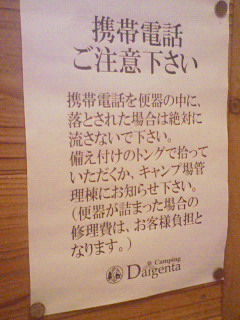 携帯電話
ご注意下さい
携帯電話を便器の中に、
落とされた場合は絶対に
流さないで下さい。
備え付けのトングで拾って
いただくか、キャンプ場管
理棟にお知らせ下さい。
(便器が詰まった場合の
修理費は、お客様負担と
なります。)
Camping
Daigenta